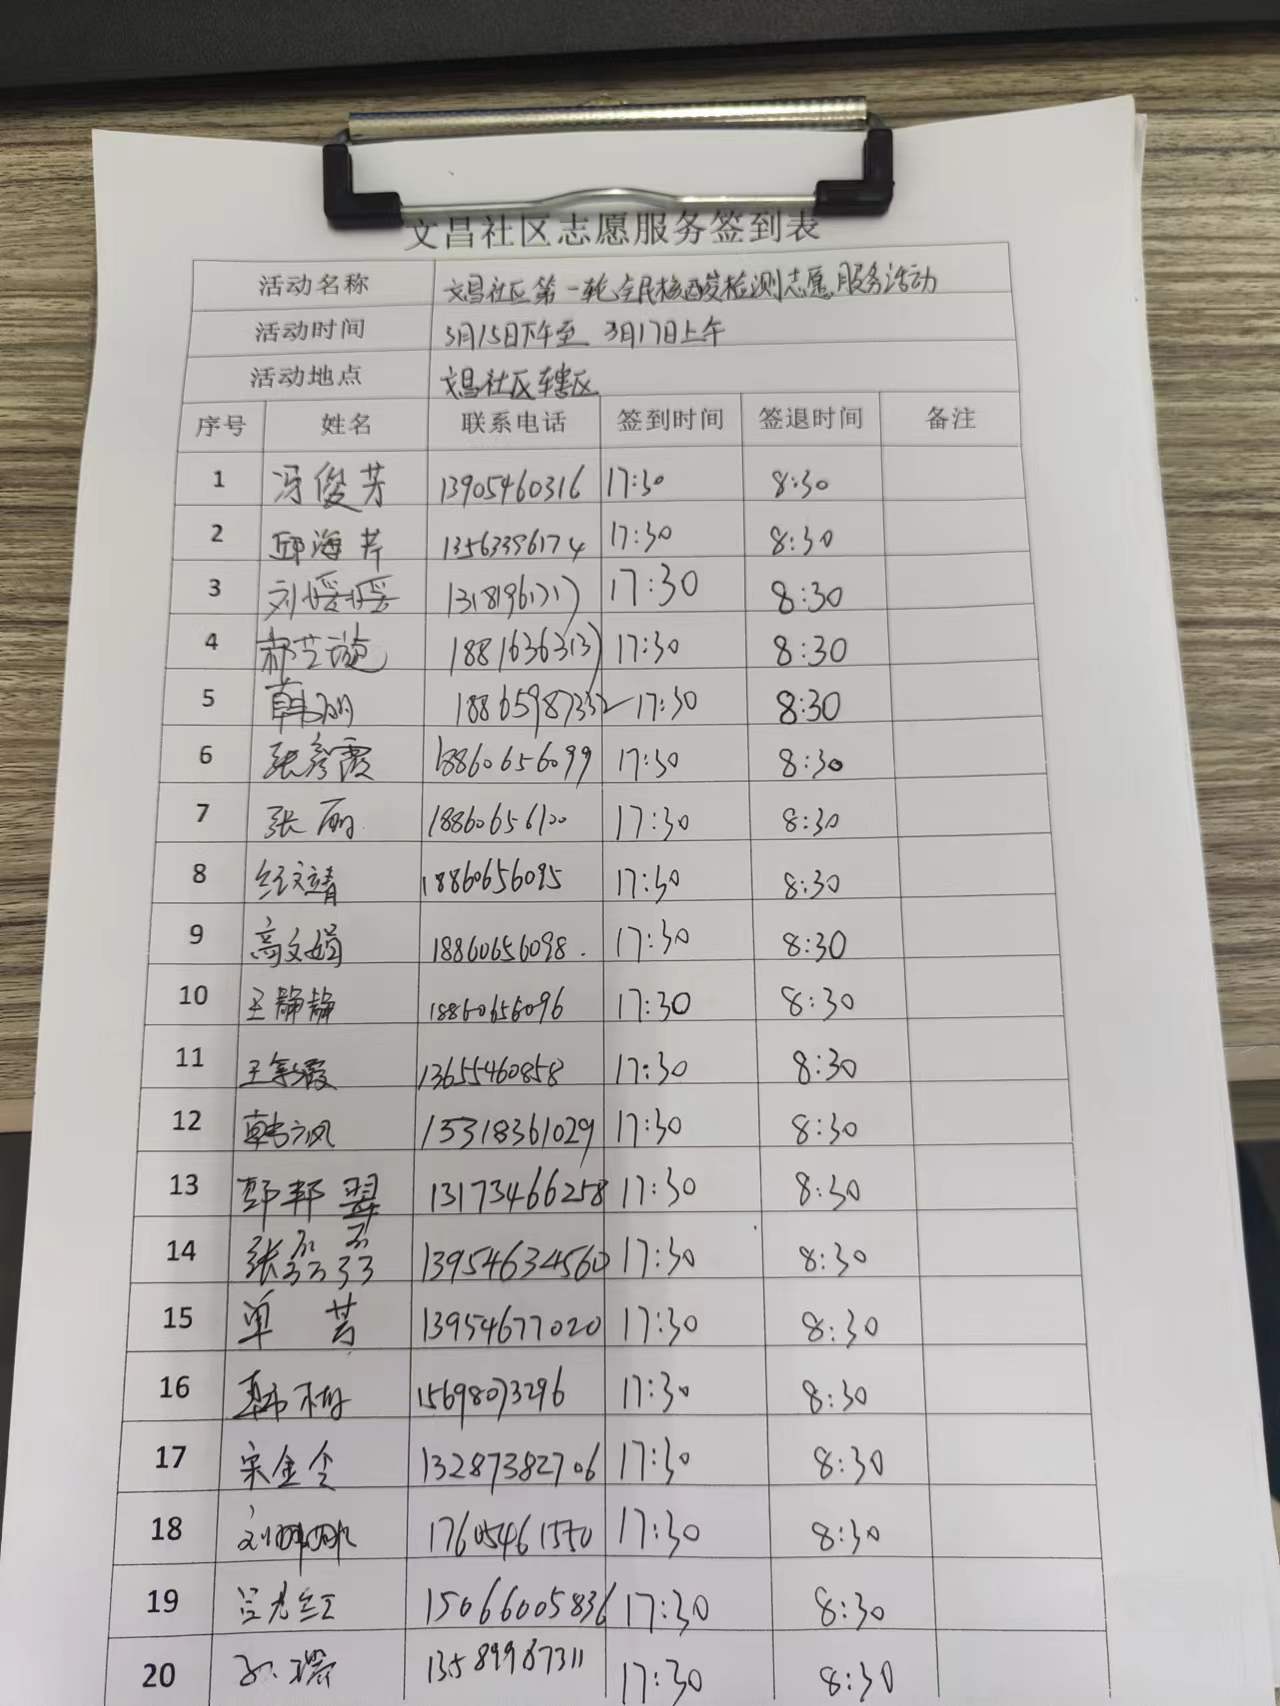 文昌社区志愿服务签到表
活动名称 文昌社区第一轮全民核酸检测志愿服务活动
活动时间 3月15日下午至 3月17日上午
活动地点 文昌社区辖区
序号 姓名 联系电话 签到时间 签退时间 备注
1 冯俊芳 13905460316 17:30 8:30
2 邱海芹 13563396174 17:30 8:30
3 刘媛媛 13181961717 17:30 8:30
4 郝芝璇 18816363137 17:30 8:30
5 韩丽 18865987332 17:30 8:30
6 张彦霞 18860656099 17:30 8:30
7 张丽 18860656100 17:30 8:30
8 文靖 18860656095 17:30 8:30
9 高文娟 18860656098. 17:30 8:30
10 王静静 18860656096 17:30 8:30
11 王 霞 13655460858 17:30 8:30
12 韩 凤 15318361029 17:30 8:30
13 邦 13173466258 17:30 8:30
14 张磊磊 13954634560 17:30 8:30
15 单 芳 13954677020 17:30 8:30
16 韩梅 15698073296 17:30 8:30
17 宋金令 13287382706 17:30 8:30
18 刘 17605461550 17:30 8:30
19 吕 红 15066005836 17:30 8:30
20 13589987311 17:30 8:30